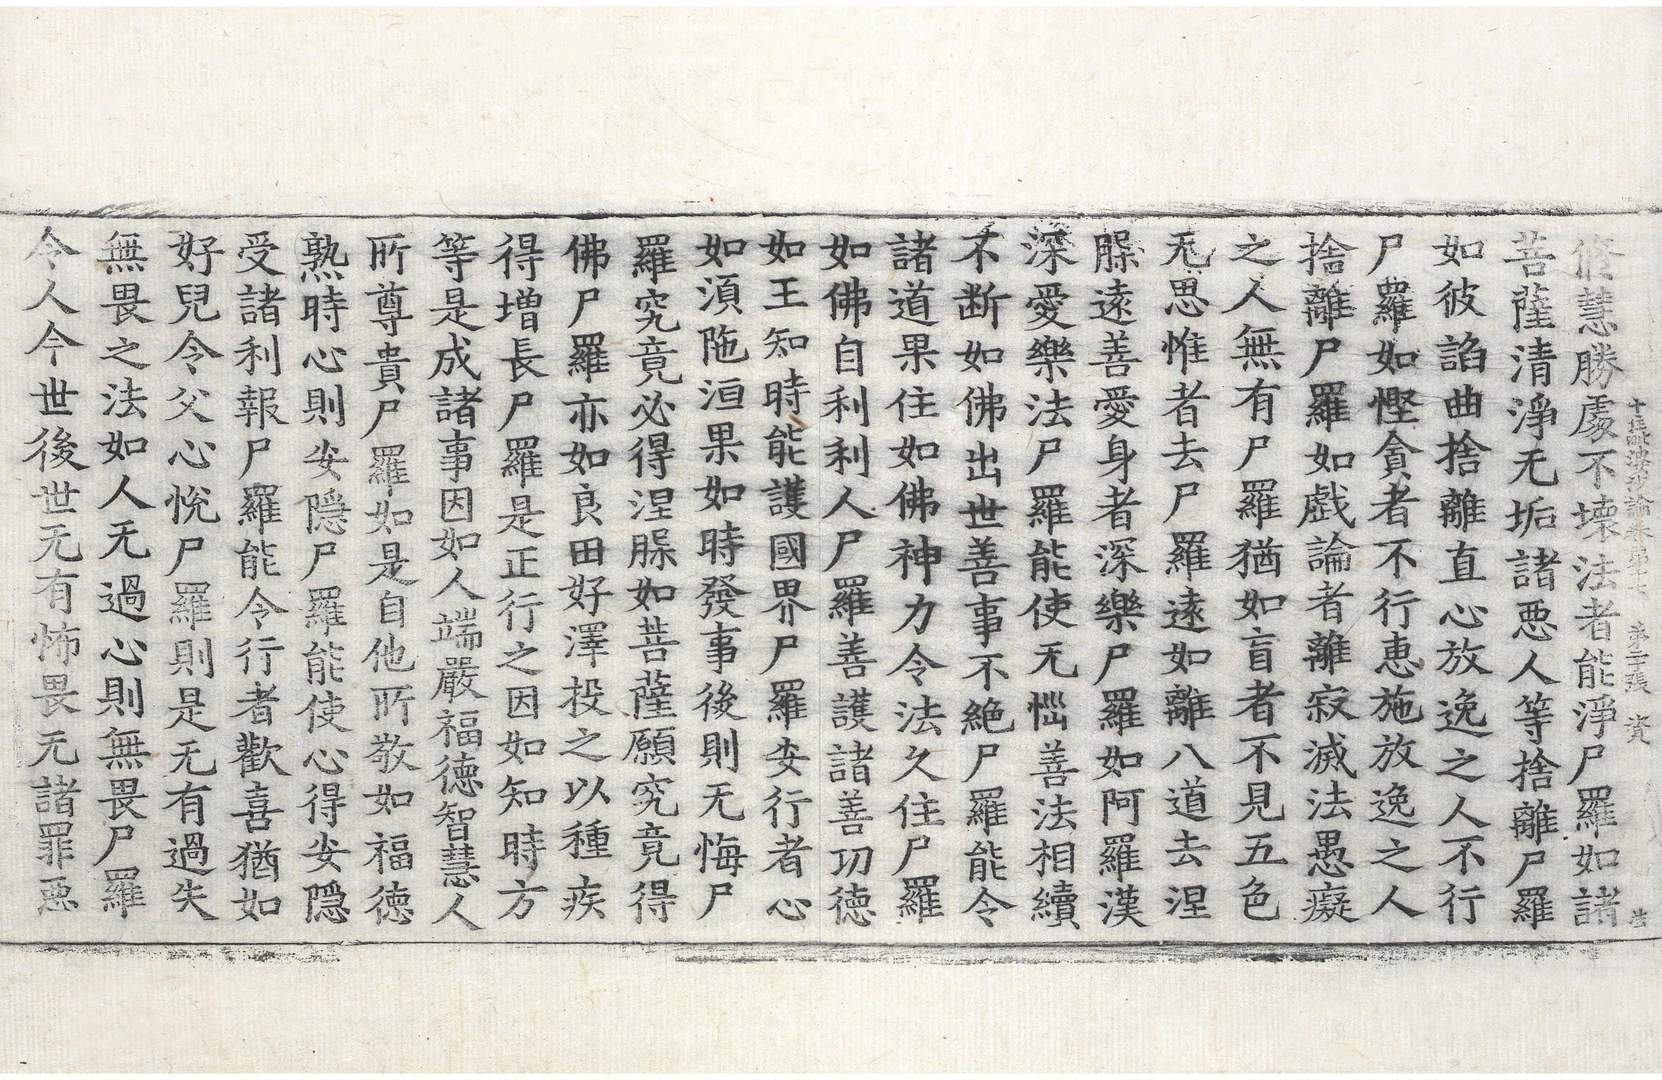 十住毗婆沙論卷第十七　第二十張　資
修慧勝處不壞法者能淨尸羅如諸
菩薩清淨无垢諸惡人等捨離尸羅
如彼諂曲捨離直心放逸之人不行
尸羅如慳貪者不行惠施放逸之人
捨離尸羅如戲論者離寂滅法愚癡
之人無有尸羅猶如盲者不見五色
无思惟者去尸羅遠如離八道去涅
槃遠善愛身者深樂尸羅如阿羅漢
深愛樂法尸羅能使无惱善法相續
不断如佛出世善事不絶尸羅能令
諸道果住如佛神力令法久住尸羅
如佛自利利人尸羅善護諸善功德
如王知時能護國界尸羅安行者心
如湏陁洹果如時發事後則无悔尸
羅究竟必得涅槃如菩薩願究竟得
佛尸羅亦如良田好澤投之以種疾
得增長尸羅是正行之因如知時方
等是成諸事因如人端嚴福德智慧人
所尊貴尸羅如是自他所敬如福德
熟時心則安隱尸羅能使心得安隱
受諸利報尸羅能令行者歡喜猶如
好兒令父心悅尸羅則是无有過失
無畏之法如人无過心則無畏尸羅
令人今世後世无有怖畏无諸罪惡